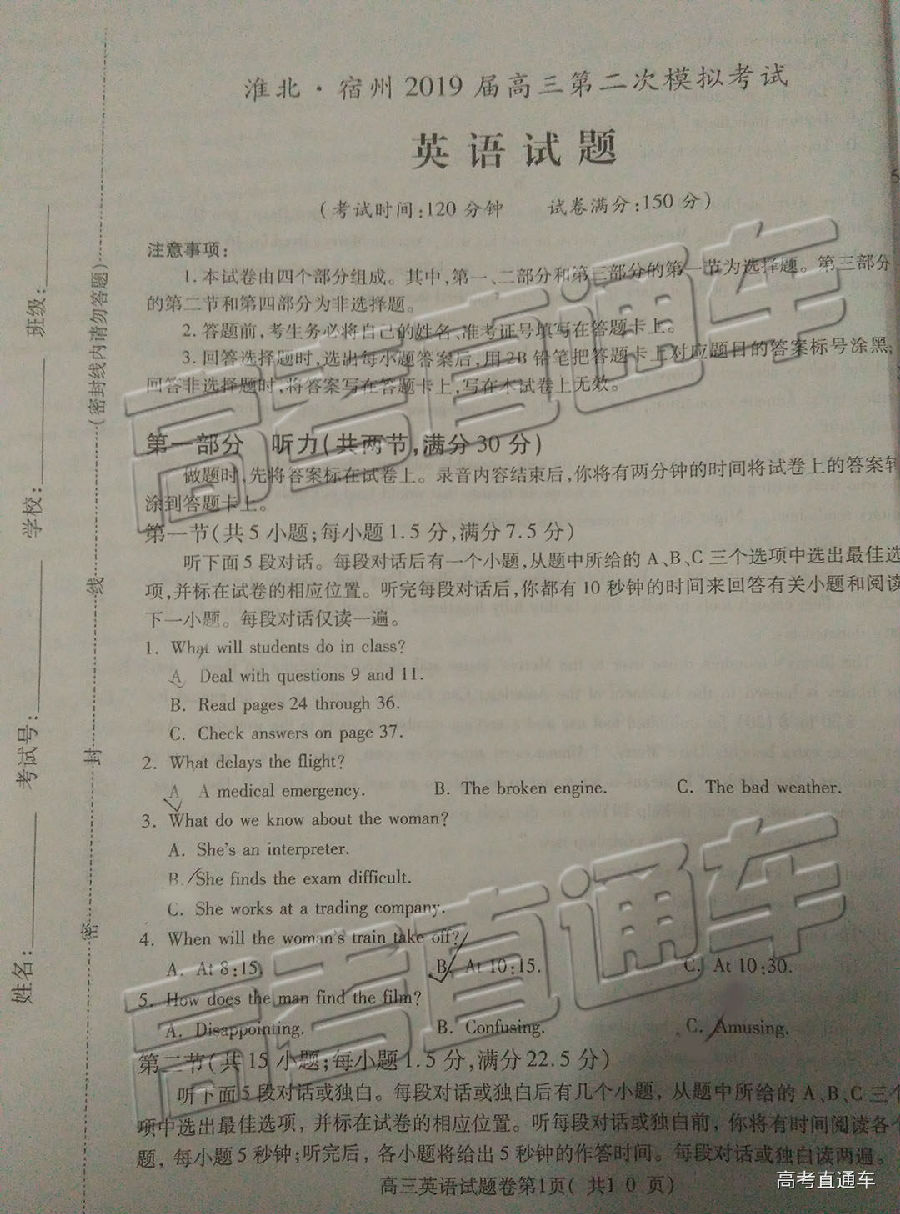 淮北·宿州2019届高三第二次模拟考试
英语试题
(考试时间:120分钟 试卷满分:150分)
注意事项:
1.本试卷由四个部分组成。其中,第一、二部分和第三部分的第一节为选择题。第三部分
的第二节和第四部分为非选择题。
2.答题前,考生务必将自己的姓名、准考证号填写在答题卡上。
3.回答选择题时,选出每小题答案后,用2B铅笔把答题卡上对应题目的答案标号涂黑,
回答非选择题时,将答案写在答题卡上,写在本试卷上无效。
第一部分 听力(共两节,满分30分)
做题时,先将答案标在试卷上。录音内容结束后,你将有两分钟的时间将试卷上的答案转
涂到答题卡上。
第一节(共5小题;每小题1.5分,满分7.5分)
听下面5段对话。每段对话后有一个小题,从题中所给的A、B、C三个选项中选出最佳选
项,并标在试卷的相应位置。听完每段对话后,你都有10秒钟的时间来回答有关小题和阅读
下一小题。每段对话仅读一遍。
1. What will students do in class?
A. Deal with questions 9 and 11.
B. Read pages 24 through 36.
C. Check answers on page 37.
2. What delays the flight?
A. A medical emergency. B. The broken engine. C. The bad weather.
3. What do we know about the woman?
A. She's an interpreter.
B. She finds the exam difficult.
C. She works at a trading company.
4. When will the woman's train take off?
A. At 8:15. B. At 10:15. C. At 10:30.
5. How does the man find the film?
A. Disappointing. B. Confusing. C. Amusing.
第二节(共15小题;每小题1.5分,满分22.5分)
听下面5段对话或独白。每段对话或独白后有几个小题,从题中所给的A、B、C三个
项中选出最佳选项,并标在试卷的相应位置。听每段对话或独白前,你将有时间阅读各个
题,每小题5秒钟;听完后,各小题将给出5秒钟的作答时间。每段对话或独白读两遍。
高三英语试题卷第1页( 共10页)
姓名: 考试号: 学校: 班级:
密 封 线 (密封线内请勿答题)
高考直通车
高考直通车
高考直通车